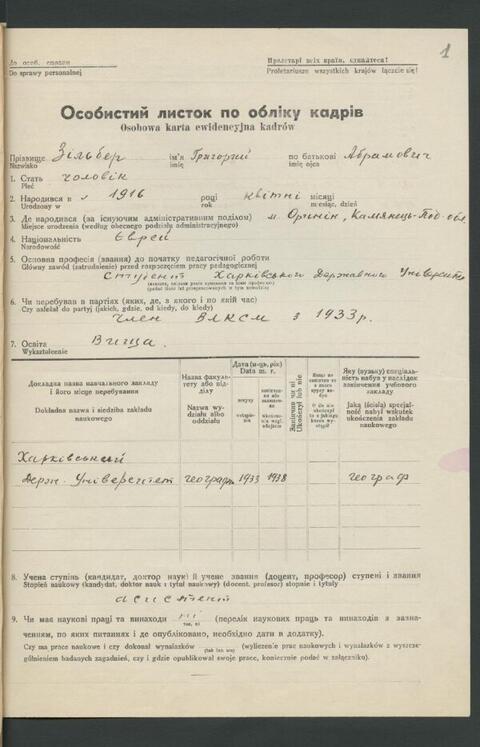 1
До особ. справи
Do sprawy personalnej
Пролетарі всіх країн, єднайтеся!
Proletariusze wszystkich krajów łączcie się!
Особистий листок по обліку кадрів
Osobowa karta ewidencyjna kadrów
Прізвище Зільбер ім'я Григорий по батькові Абрамович
Nazwisko imię imię ojca
1. Стать чоловік
Płeć
2. Народився в 1916 році квітні місяці
Urodzony w rok miesiąc, dzień
3. Де народився (за існуючим адміністративним поділом) м. Оринін, Камянець-Под. обл.
Miejsce urodzenia (według obecnego podziału administracyjnego)
4. Національність Єврей
Narodowość
5. Основна професія (звання) до початку педагогічної роботи
Główny zawód (zatrudnienie) przed rozpoczęciem pracy pedagogicznej
Студент Харківського Державного Університету
6. Чи перебував в партіях (яких, де, з якого і по який час)
Czy należał do partyj (jakich, gdzie, od kiedy, do kiedy)
член ВЛКСМ з 1933 р.
7. Освіта Вища.
Wykształcenie
Докладна назва навчального закладу і його місце перебування
Dokładna nazwa i siedziba zakładu naukowego
Назва факультету або відділу
Nazwa wydziału albo oddziału
Дата (м-ць, рік)
Data m. r.
Закінчив чи ні
Ukończył lub nie
Яку (вузьку) спеціальність набув у наслідок закінчення учбового закладу
Jaką (ścisłą) specjalność nabył wskutek ukończenia zakładu naukowego
Харківський
Держ. Університет географ. 1933 1938 географ
8. Учена ступінь (кандидат, доктор наук) й учене звання (доцент, професор) ступені і звання
Stopień naukowy (kandydat, doktor nauk i tytuł naukowy) (docent, profesor) stopnie i tytuły
асистент
9. Чи має наукові праці та винаходи ні (перелік наукових праць та винаходів з зазначенням, по яких питаннях і де опубліковано, необхідно дати в додатку).
так, ні
Czy ma prace naukowe i czy dokonał wynalazków (wyliczenie prac naukowych i wynalazków z wyszczególnieniem badanych zagadnień, czy i gdzie opublikował swoje prace, koniecznie podać w załączniku).
tak lub nie